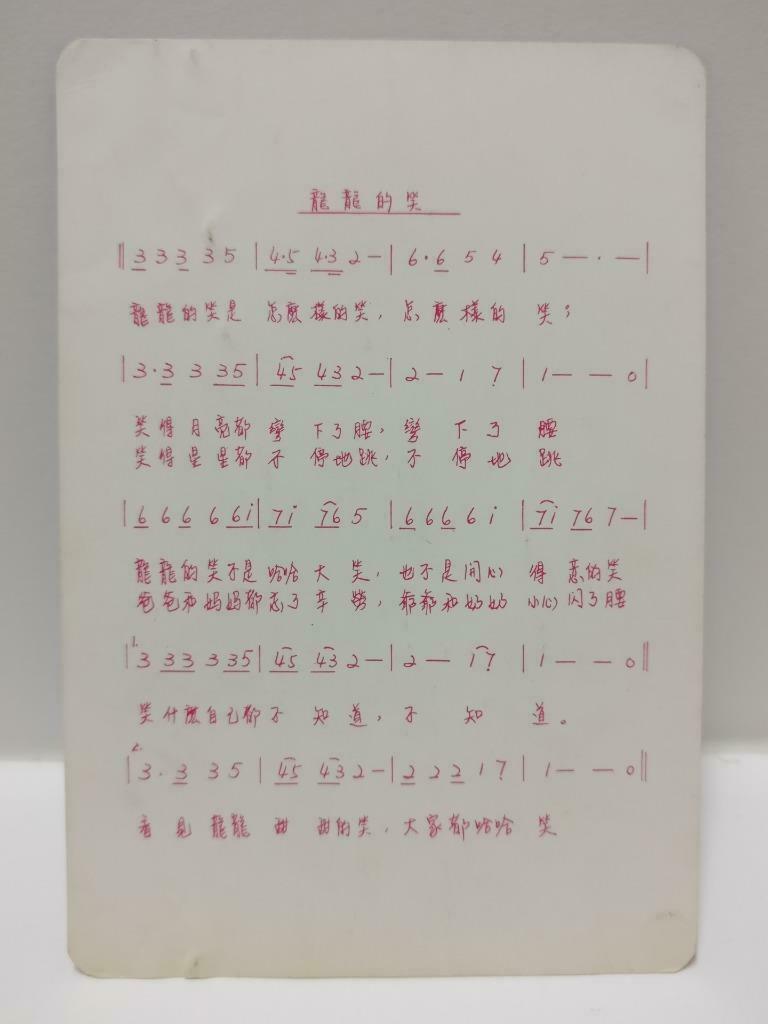 龍龍的笑
‖3 3 3 3 5 | 4·5 4·3 2 — | 6·6 5 4 | 5 — · — |
龍龍的笑是 怎麼樣的笑，怎麼樣的 笑；
| 3·3 3 35 | 45 43 2 — | 2 — 1 7 | 1 — — 0 |
笑得月亮都 彎 下了腰，彎 下 了 腰
笑得星星都 不 停地跳，不 停 地 跳
| 6 6 6 6 6i | 7i 76 5 | 6 6 6 6 i | 7i 76 7 — |
龍龍的笑不是哈哈大 笑，也不是開心 得 意的笑
爸爸和媽媽都忘了辛 勞，爺爺和奶奶 小心閃了腰
1. | 3 33 3 35 | 45 43 2 — | 2 — 17 | 1 — — 0 ‖
笑什麼自己都不 知 道，不 知 道。
2. | 3·3 3 5 | 45 43 2 — | 2 2 2 1 7 | 1 — — 0 ‖
看見龍龍 甜 甜的笑，大家都哈哈 笑